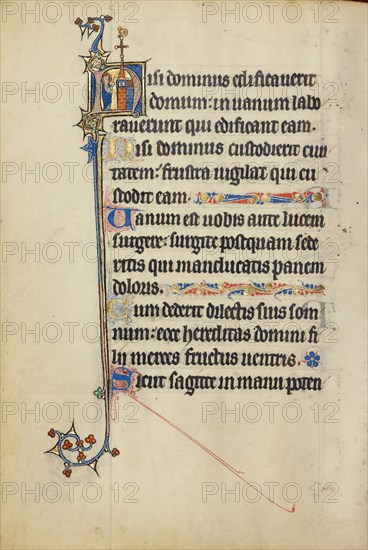 Nisi dominus edificauerit
domum: in uanum labo
rauerunt qui edificant eam.
Nisi dominus custodierit ciui
tatem: frustra uigilat qui cu
stodit eam.
Uanum est uobis ante lucem
surgere: surgite postquam sede
ritis qui manducatis panem
doloris.
Cum dederit dilectis suis som
num: ecce hereditas domini fi
lii merces fructus uentris.
Sicut sagitte in manu poten